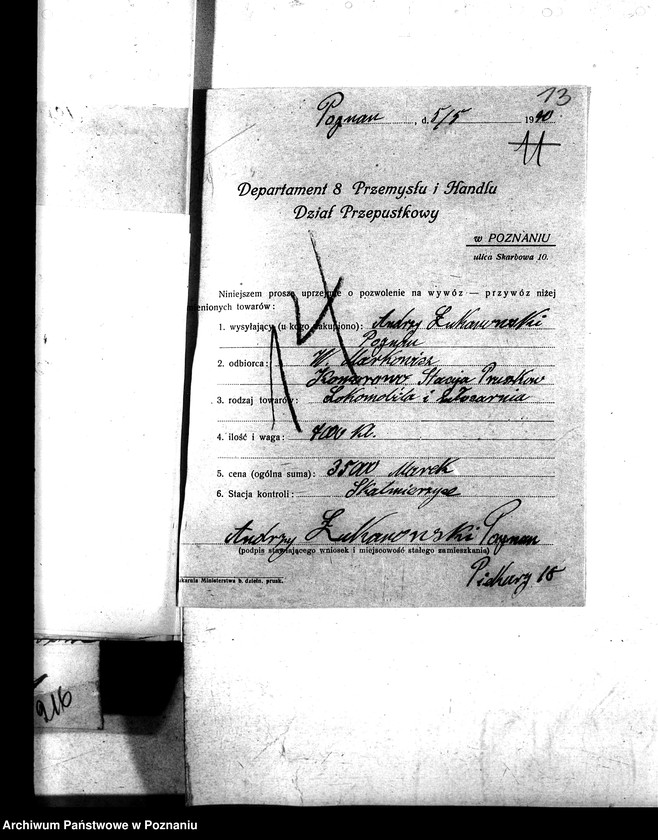 13
Poznan, d. 5/5 1920
11
Departament 8 Przemysłu i Handlu
Dział Przepustkowy
w POZNANIU
ulica Skarbowa 10.
Niniejszem proszę uprzejmie o pozwolenie na wywóz — przywóz niżej
ienionych towarów:
1. wysyłający (u kogo zakupiono): Andrzy Żukanowski
Poznan
2. odbiorca: W. Markowicz
Komorowo Stacja Pruszkow
3. rodzaj towarów: Lokomobila i
4. ilość i waga: 7000 kl.
5. cena (ogólna suma): 3500 Marek
6. Stacja kontroli: Skalmierzyce
Andrzy Żukanowski Poznan
(podpis stawiającego wniosek i miejscowość stałego zamieszkania)
18
ukarnia Ministerstwa b. dzieln. prusk.
216
Archiwum Państwowe w Poznaniu